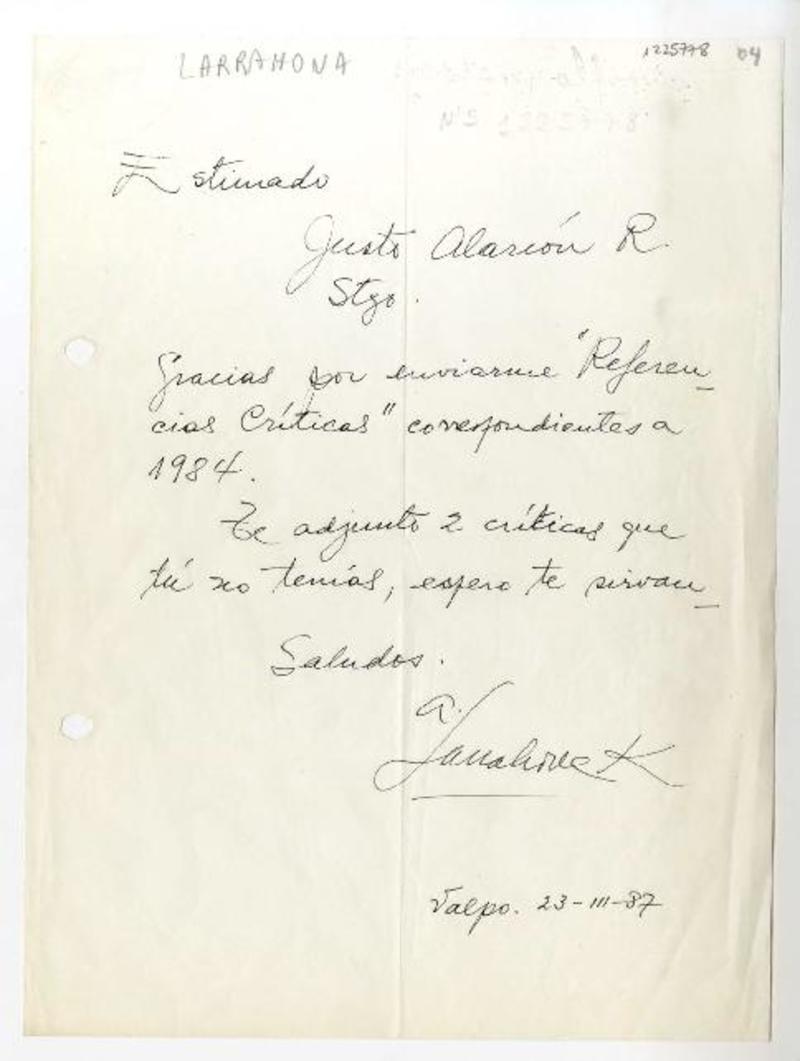 LARRAHONA
1225778 04
Nº 1225778
Estimado
Justo Alarcón R.
Stgo.
Gracias por enviarme "Referen_
cias Críticas" correspondientes a
1984.
Te adjunto 2 críticas que
tú no tenías, espero te sirvan_
Saludos.
A.
Larrahona K
Valpo. 23-III-87